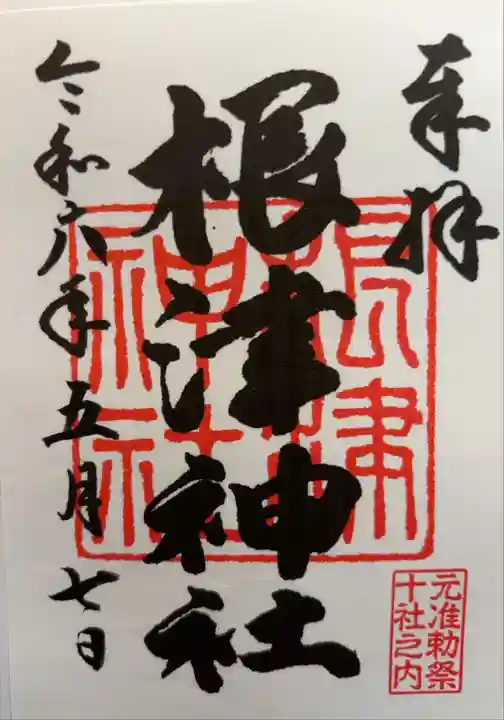 奉拝
根津神社
根津
神社
令和六年五月七日
元准勅祭
十社之内